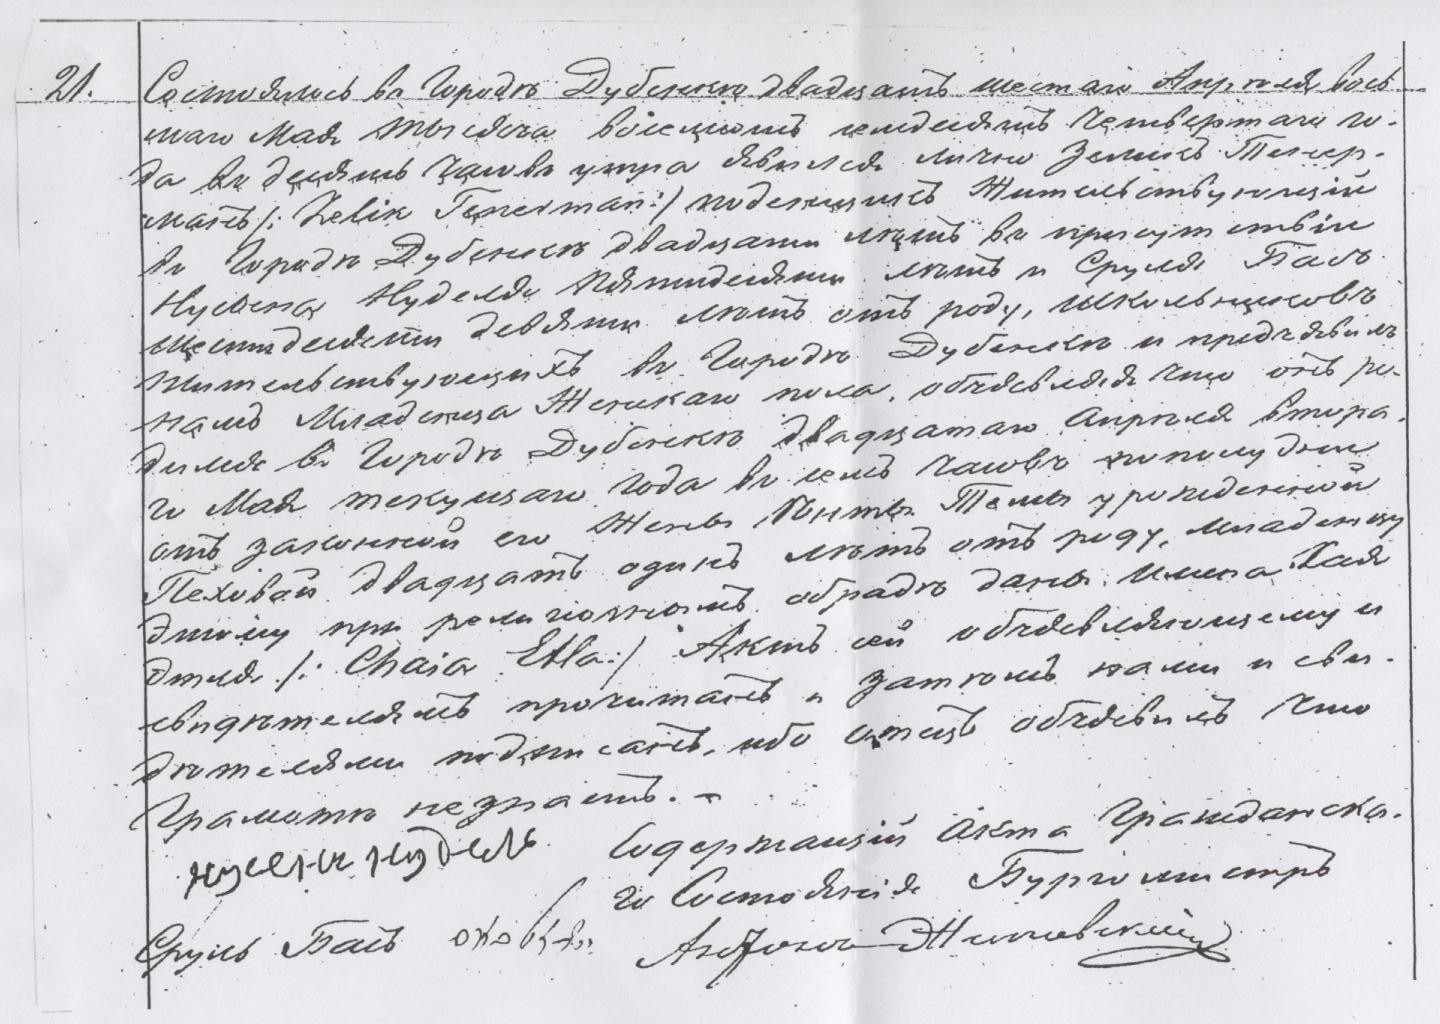 21.
Состоялось въ Городѣ Дубенкѣ двадцать шестаго Апрѣля вось
маго Мая тысяча восемьсотъ семдесятъ Четвертаго го-
да въ десять часовъ утра явился лично Зеликъ Тенер-
манъ /: Zelik Tenerman :/ поденщикъ Жительствующій
въ Городѣ Дубенкѣ двадцати лѣтъ въ присутствіи
Нусына Нуделя пятидесяти лѣтъ и Сруля Басъ
шестидесяти девяти лѣтъ отъ роду, школьниковъ
жительствующихъ въ Городѣ Дубенкѣ и предъявилъ
намъ Младенца Женскаго пола, объявляя что онъ ро-
дился въ Городѣ Дубенкѣ двадцатаго Апрѣля втора-
го Мая текущаго года въ семь часовъ пополудни
отъ законной его Жены Темы урожденной
двадцать одинъ лѣтъ отъ роду, младенцу
этому при религіозномъ обрядѣ даны имина Хая
Этля /: Chaia Etla :/ Актъ сей объявляющему и
свидѣтелямъ прочитанъ и затѣмъ нами и сви-
дѣтелями подписанъ, ибо отецъ объявилъ что
Грамотѣ незнаетъ. -
нусенъ нудель
Содержащій Акта Гражданска-
го Состоянія Бургомистръ
Сруль Басъ